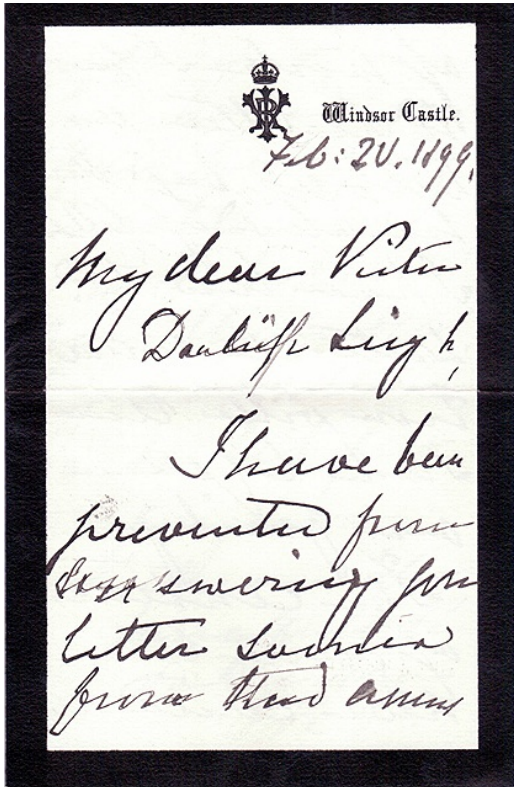 Windsor Castle.
Feb: 20. 1899.
My dear Victor
Duleep Singh,
I have been
prevented from
answering your
letter sooner
from